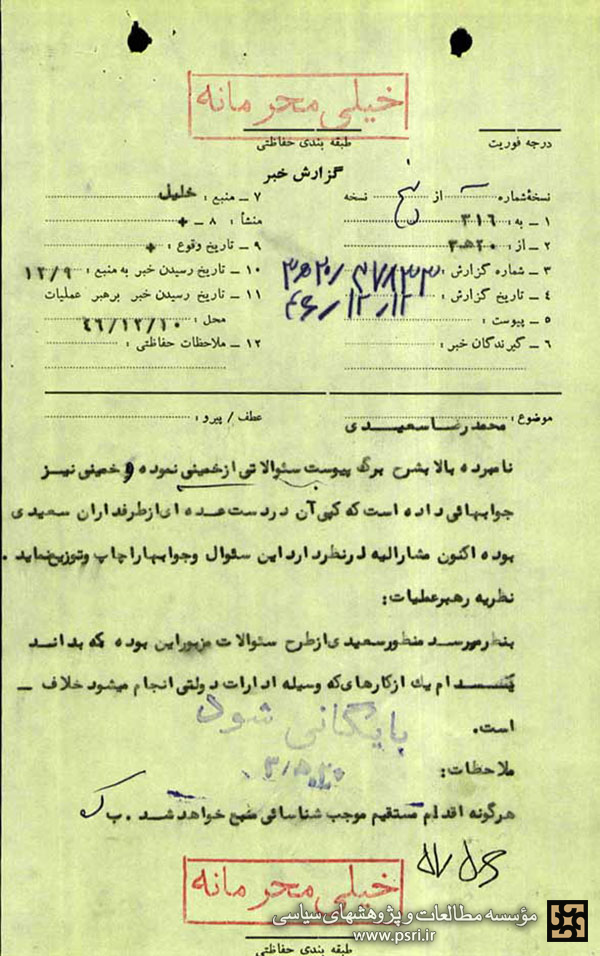 خیلی محرمانه
درجه فوریت
طبقه بندی حفاظتی
گزارش خبر
نسخهٔ شماره از نسخه
۱ ــ به : ۳۱۶
۲ ــ از : ۲۰ ﻫ ۳
۳ ــ شماره گزارش : ۴۷۸۳۳ / ۲۰ ﻫ ۳
۴ ــ تاریخ گزارش : ۴۶/۱۲/۱۲
۵ ــ پیوست :
۶ ــ گیرندگان خبر :
۷ ــ منبع : خلیل
۸ ــ منشأ : +
۹ ــ تاریخ وقوع : +
۱۰ ــ تاریخ رسیدن خبر به منبع : ۱۲/۹
۱۱ ــ تاریخ رسیدن خبر برهبر عملیات
محل : ۴۶/۱۲/۱۰
۱۲ ــ ملاحظات حفاظتی :
موضوع : محمدرضا سعیدی
عطف / پیرو :
نامبرده بالا بشرح برگ پیوست سئوالاتی از خمینی نموده و خمینی نیز
جوابهائی داده است که کپی آن در دست عده ای از طرفداران سعیدی
بوده اکنون مشارالیه در نظر دارد این سئوال و جوابها را چاپ و توزیع نماید .
نظریه رهبر عملیات :
بنظر میرسد منظور سعیدی از طرح سئوالات مزبور این بوده که بداند
کدام یک از کارهای که وسیله ادارات دولتی انجام میشود خلاف ــ
است .
بایگانی شود
ملاحظات :
هرگونه اقدام مستقیم موجب شناسائی منبع خواهد شد . ب ک
خیلی محرمانه
طبقه بندی حفاظتی
مؤسسه مطالعات و پژوهشهای سیاسی
www.psri.ir